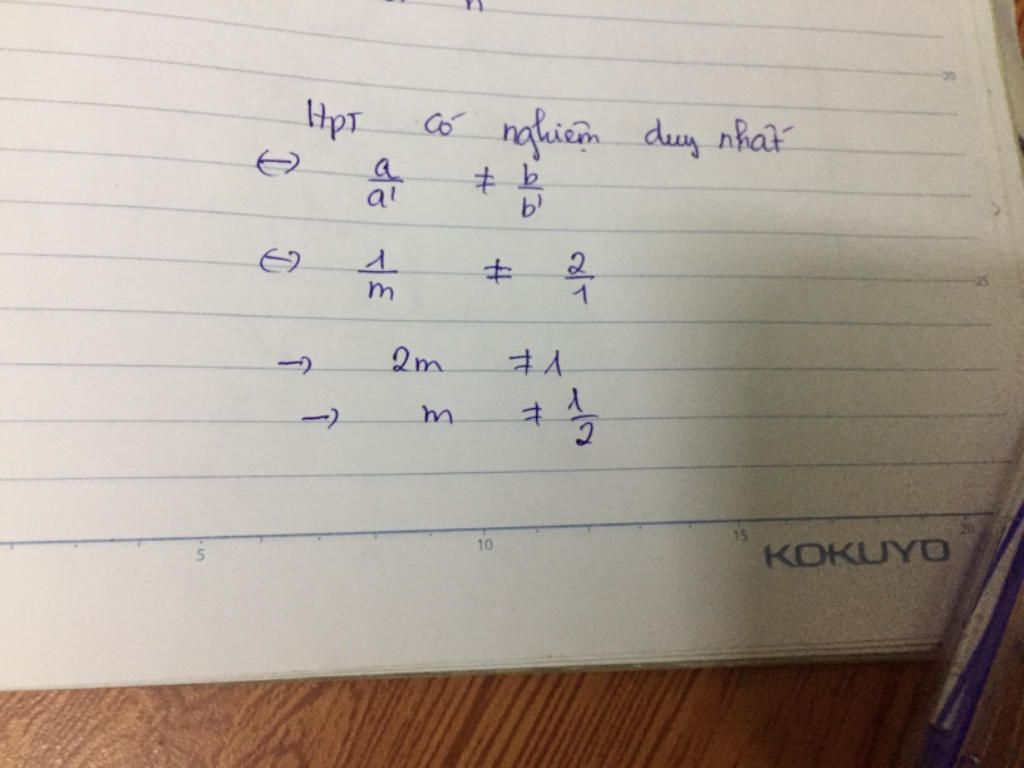 20
HPT có nghiệm duy nhất
⇔ a/a' ≠ b/b'
⇔ 1/m ≠ 2/1
25
→ 2m ≠ 1
→ m ≠ 1/2
5 10 15 20
KOKUYO